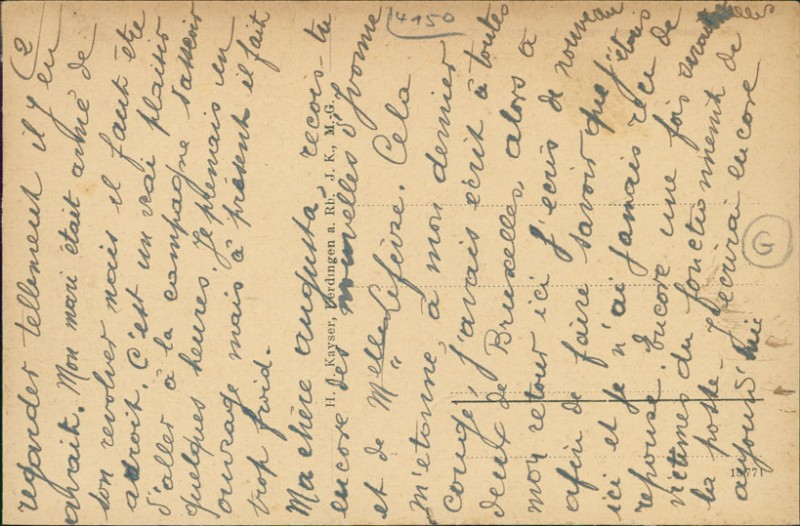 2
regarder tellement il y en
avait. Mon mari était armé de
son revolver mais il faut être
adroit. C'est un vrai plaisir
d'aller à la campagne s'asseoir
quelques heures. Je prenais un
ouvrage mais à présent il fait
trop froid.
Ma chère augusta, recois-tu
encore des nouvelles d'Yvonne
et de Melle Lefèvre. Cela
m'étonne, à mon dernier
congé, j'avais écrit à toutes
deux de Bruxelles, alors à
mon retour ici j'écris de nouveau
afin de faire savoir que j'étais
ici et je n'ai jamais recu de
reponse. Encore une fois
victimes du fonctionnement de
la poste. J'ecrirai encore
aujourd'hui
4+50
1
H. J. Kayser, Herdingen a. Rh. J. K., M.-G.